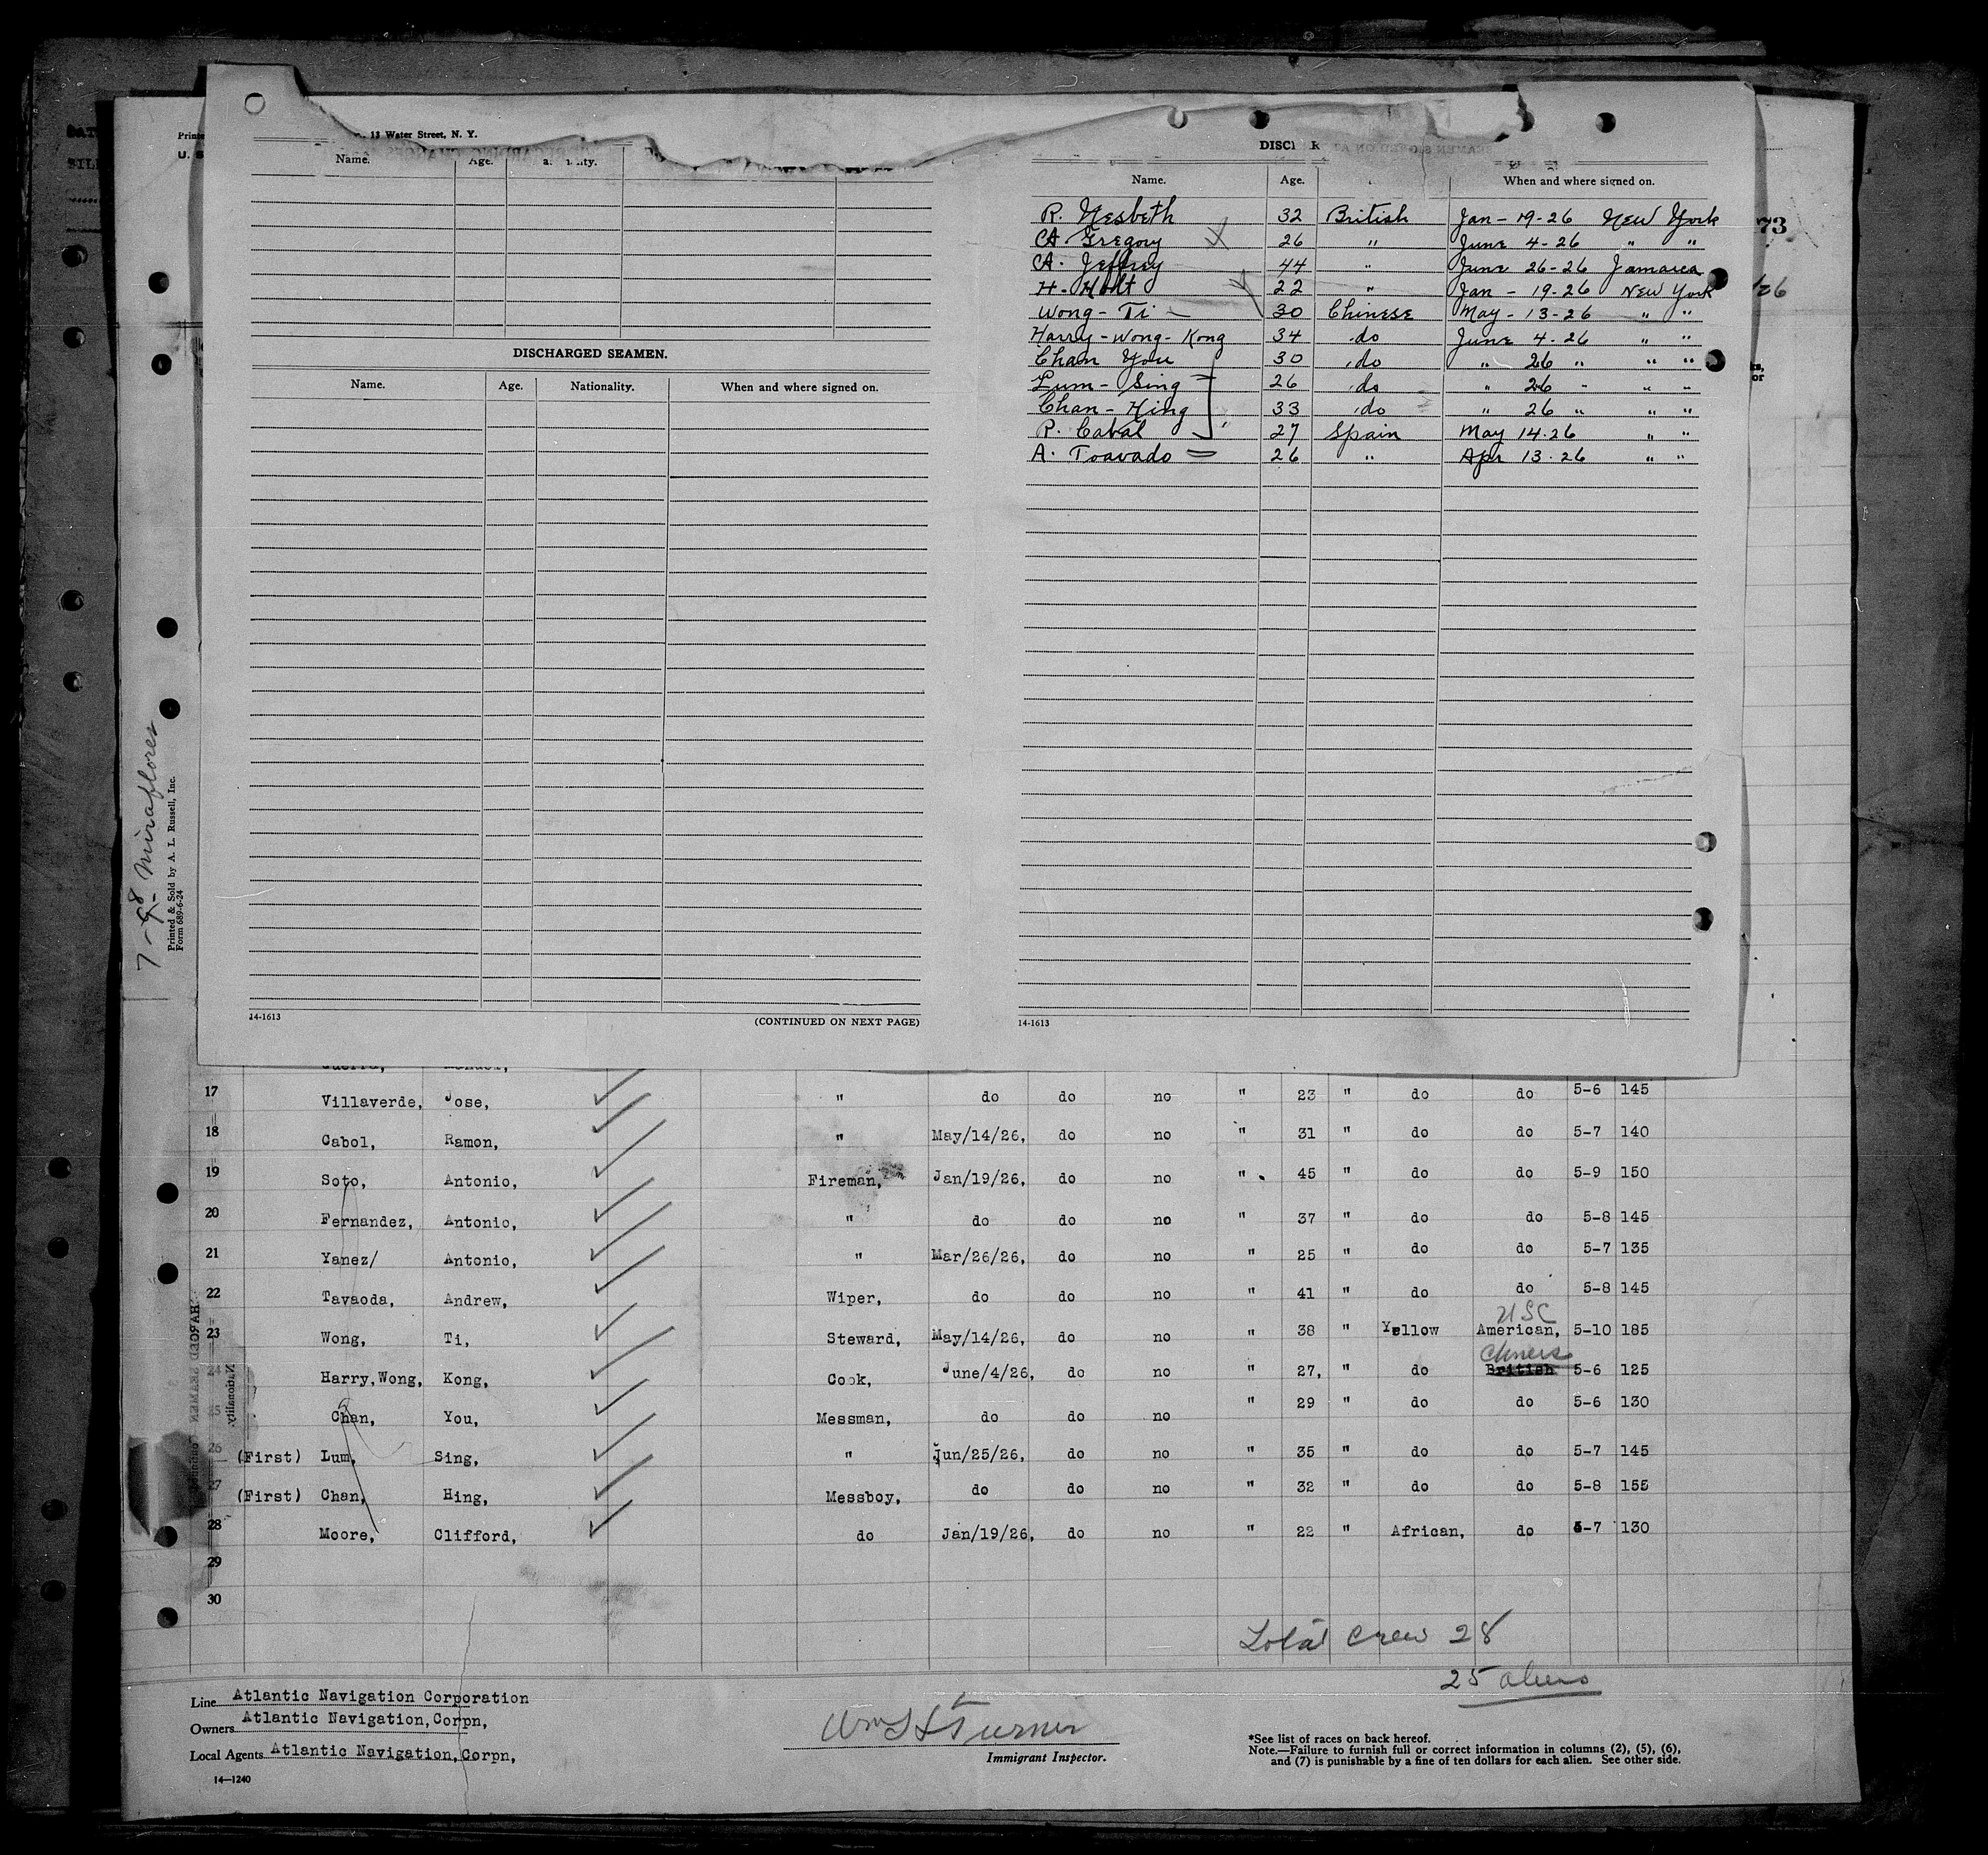 13 Water Street, N. Y.
Name. Age.
DISCHARGED SEAMEN.
Name. Age. Nationality. When and where signed on.
14-1613
(CONTINUED ON NEXT PAGE)
Name. Age. When and where signed on.
R. Nesbeth 32 British Jan-19-26 New York
A. Gregory 26 " June 4-26 " "
A. Jeffrey 44 " June 26-26 Jamaica
H. Holt 22 " Jan-19-26 New York
Wong-Ti 30 Chinese May-13-26 " "
Harry-Wong-Kong 34 do June 4-26 " "
Chan You 30 do " 26 " " "
Lum-Sing 26 do " 26 " " "
Chan-Hing 33 do " 26 " " "
R. Cabal 27 Spain May 14-26 " "
A. Toavado 26 " Apr 13-26 " "
14-1613
73
26
7- Miraflores
Printed & Sold by A. L. Russell, Inc.
Form 689-6-24
17 Villaverde, Jose, " do do no " 23 " do do 5-6 145
18 Cabol, Ramon, " May/14/26, do no " 31 " do do 5-7 140
19 Soto, Antonio, Fireman, Jan/19/26, do no " 45 " do do 5-9 150
20 Fernandez, Antonio, " do do no " 37 " do do 5-8 145
21 Yanez/ Antonio, " Mar/26/26, do no " 25 " do do 5-7 135
22 Tavaoda, Andrew, Wiper, do do no " 41 " do do 5-8 145
USC
23 Wong, Ti, Steward, May/14/26, do no " 38 " Yellow American, 5-10 185
Chinese
24 Harry,Wong, Kong, Cook, June/4/26, do no " 27, " do British 5-6 125
25 Chan, You, Messman, do do no " 29 " do do 5-6 130
26 (First) Lum, Sing, " Jun/25/26, do no " 35 " do do 5-7 145
27 (First) Chan, Hing, Messboy, do do no " 32 " do do 5-8 155
28 Moore, Clifford, do Jan/19/26, do no " 22 " African, do 5-7 130
29
30
Nationality.
Total Crew 28
25 aliens
Line Atlantic Navigation Corporation
Owners Atlantic Navigation, Corpn,
Local Agents Atlantic Navigation, Corpn,
14—1240
Turner
Immigrant Inspector.
*See list of races on back hereof.
Note.—Failure to furnish full or correct information in columns (2), (5), (6),
and (7) is punishable by a fine of ten dollars for each alien. See other side.